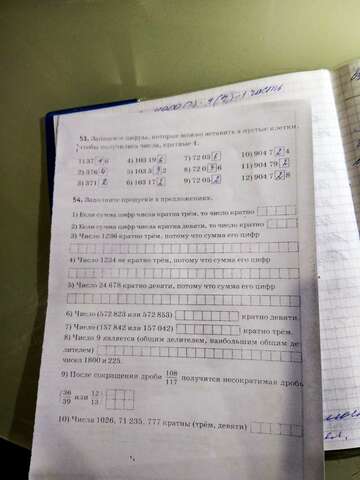 53. Запишите цифры, которые можно вставить в пустые клетки,
чтобы получились числа, кратные 4.
1) 37 6 4) 103 19 7) 72 03 10) 904 7 4
2) 376 5) 103 3 2 8) 72 0 6 11) 904 79
3) 371 2 6) 103 17 2 9) 72 03 2 12) 904 7 2 8
54. Заполните пропуски в предложениях.
1) Если сумма цифр числа кратна трём, то число кратно
2) Если сумма цифр числа кратна девяти, то число кратно
3) Число 1236 кратно трём, потому что сумма его цифр
4) Число 1234 не кратно трём, потому что сумма его цифр
5) Число 24 678 кратно девяти, потому что сумма его цифр
6) Число (572 823 или 572 853) кратно девяти.
7) Число (157 842 или 157 042) кратно трём.
8) Число 9 является (общим делителем, наибольшим общим де-
лителем)
числа 1800 и 225.
9) После сокращения дроби 108/117 получится несократимая дробь
(36/39 или 12/13)
10) Числа 1026, 71 235, 777 кратны (трём, девяти)